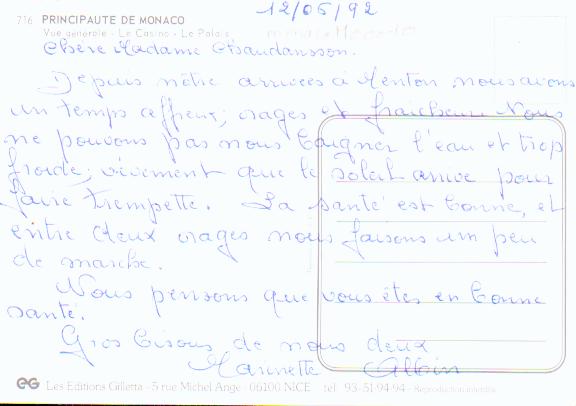 12/06/92
716 PRINCIPAUTE DE MONACO
Vue générale - Le Casino - Le Palais
Chère Madame
Depuis nôtre arrivées à Menton, nous avons
un temps affreux, orages et fraicheur. Nous
ne pouvons pas nous baigner l'eau et trop
froide, vivement que le soleil arrive pour
faire trempette. La santé est bonne, et
entre deux orages nous faisons un peu
de marche.
Nous pensons que vous êtes en bonne
santé.
Gros bisous de nous deux
Mannette Albin
EG Les Editions Gilletta - 5 rue Michel Ange - 06100 NICE tel 93-51-94-94 - Reproduction interdite